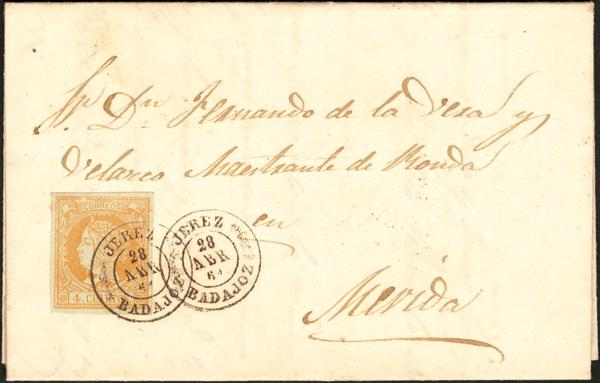 Sr. Dn. Fernando de la Vera y
Velasco Maestrante de Ronda
en
Merida
CORREOS
4 Cs
JEREZ
28
ABR
61
BADAJOZ
JEREZ
28
ABR
6
BADAJOZ